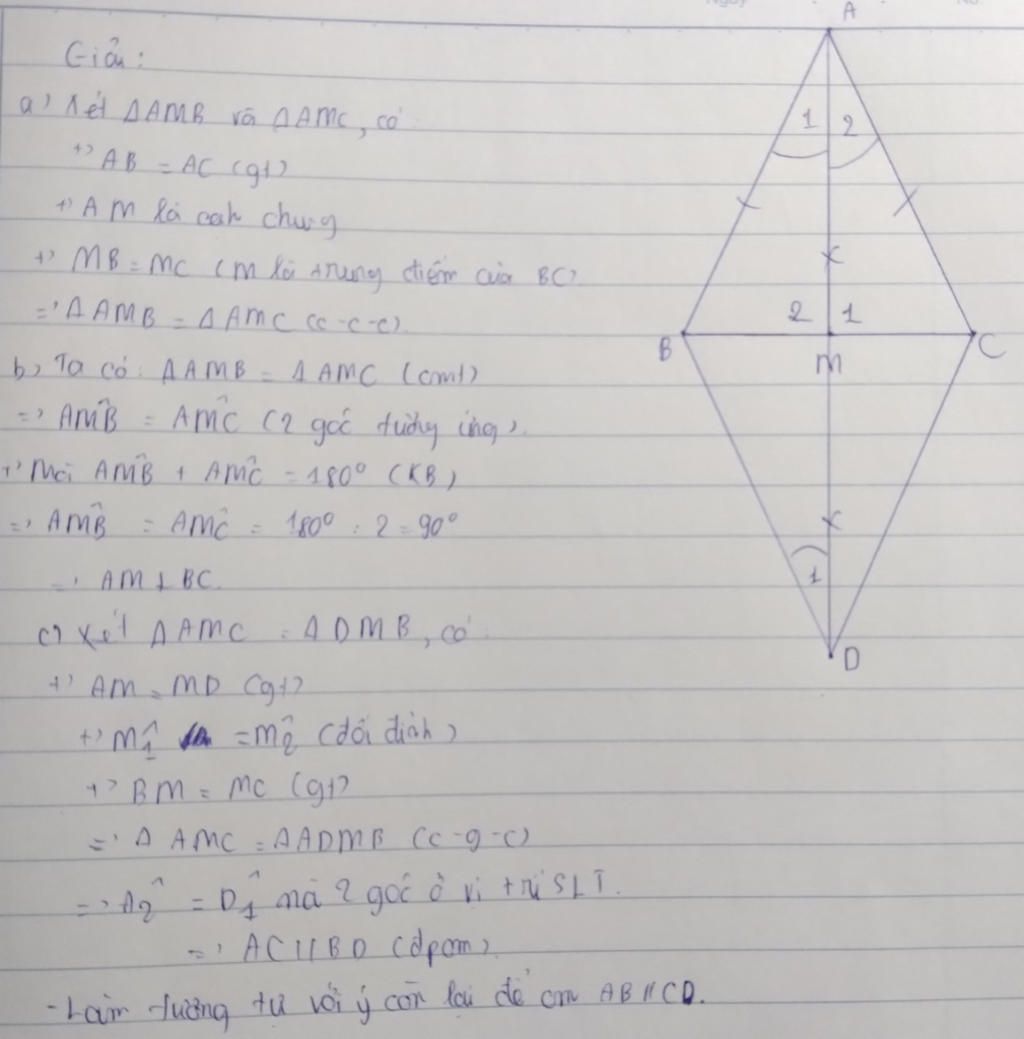 Giải:
a) Xét ΔAMB và ΔAMC, có
+) AB = AC (gt)
+) AM là cạh chung
+) MB = MC (M là trung điểm của BC)
=> ΔAMB = ΔAMC (c-c-c)
b) Ta có: ΔAMB = ΔAMC (cmt)
=> AM̂B = AM̂C (2 góc tương ứng).
+) Mà AM̂B + AM̂C = 180° (KB)
=> AM̂B = AM̂C = 180° : 2 = 90°
=> AM ⊥ BC.
c) Xét ΔAMC = ΔDMB, có
+) AM = MD (gt)
+) M̂1 = M̂2 (đối đỉnh)
+) BM = MC (gt)
=> Δ AMC = ΔADMB (c-g-c)
=> Â2 = D̂1 mà 2 góc ở vị trí SLT.
=> AC // BD (đpcm).
- Làm tương tự với ý còn lại để cm AB // CD.
A
1 2
2 1
B M C
1
D